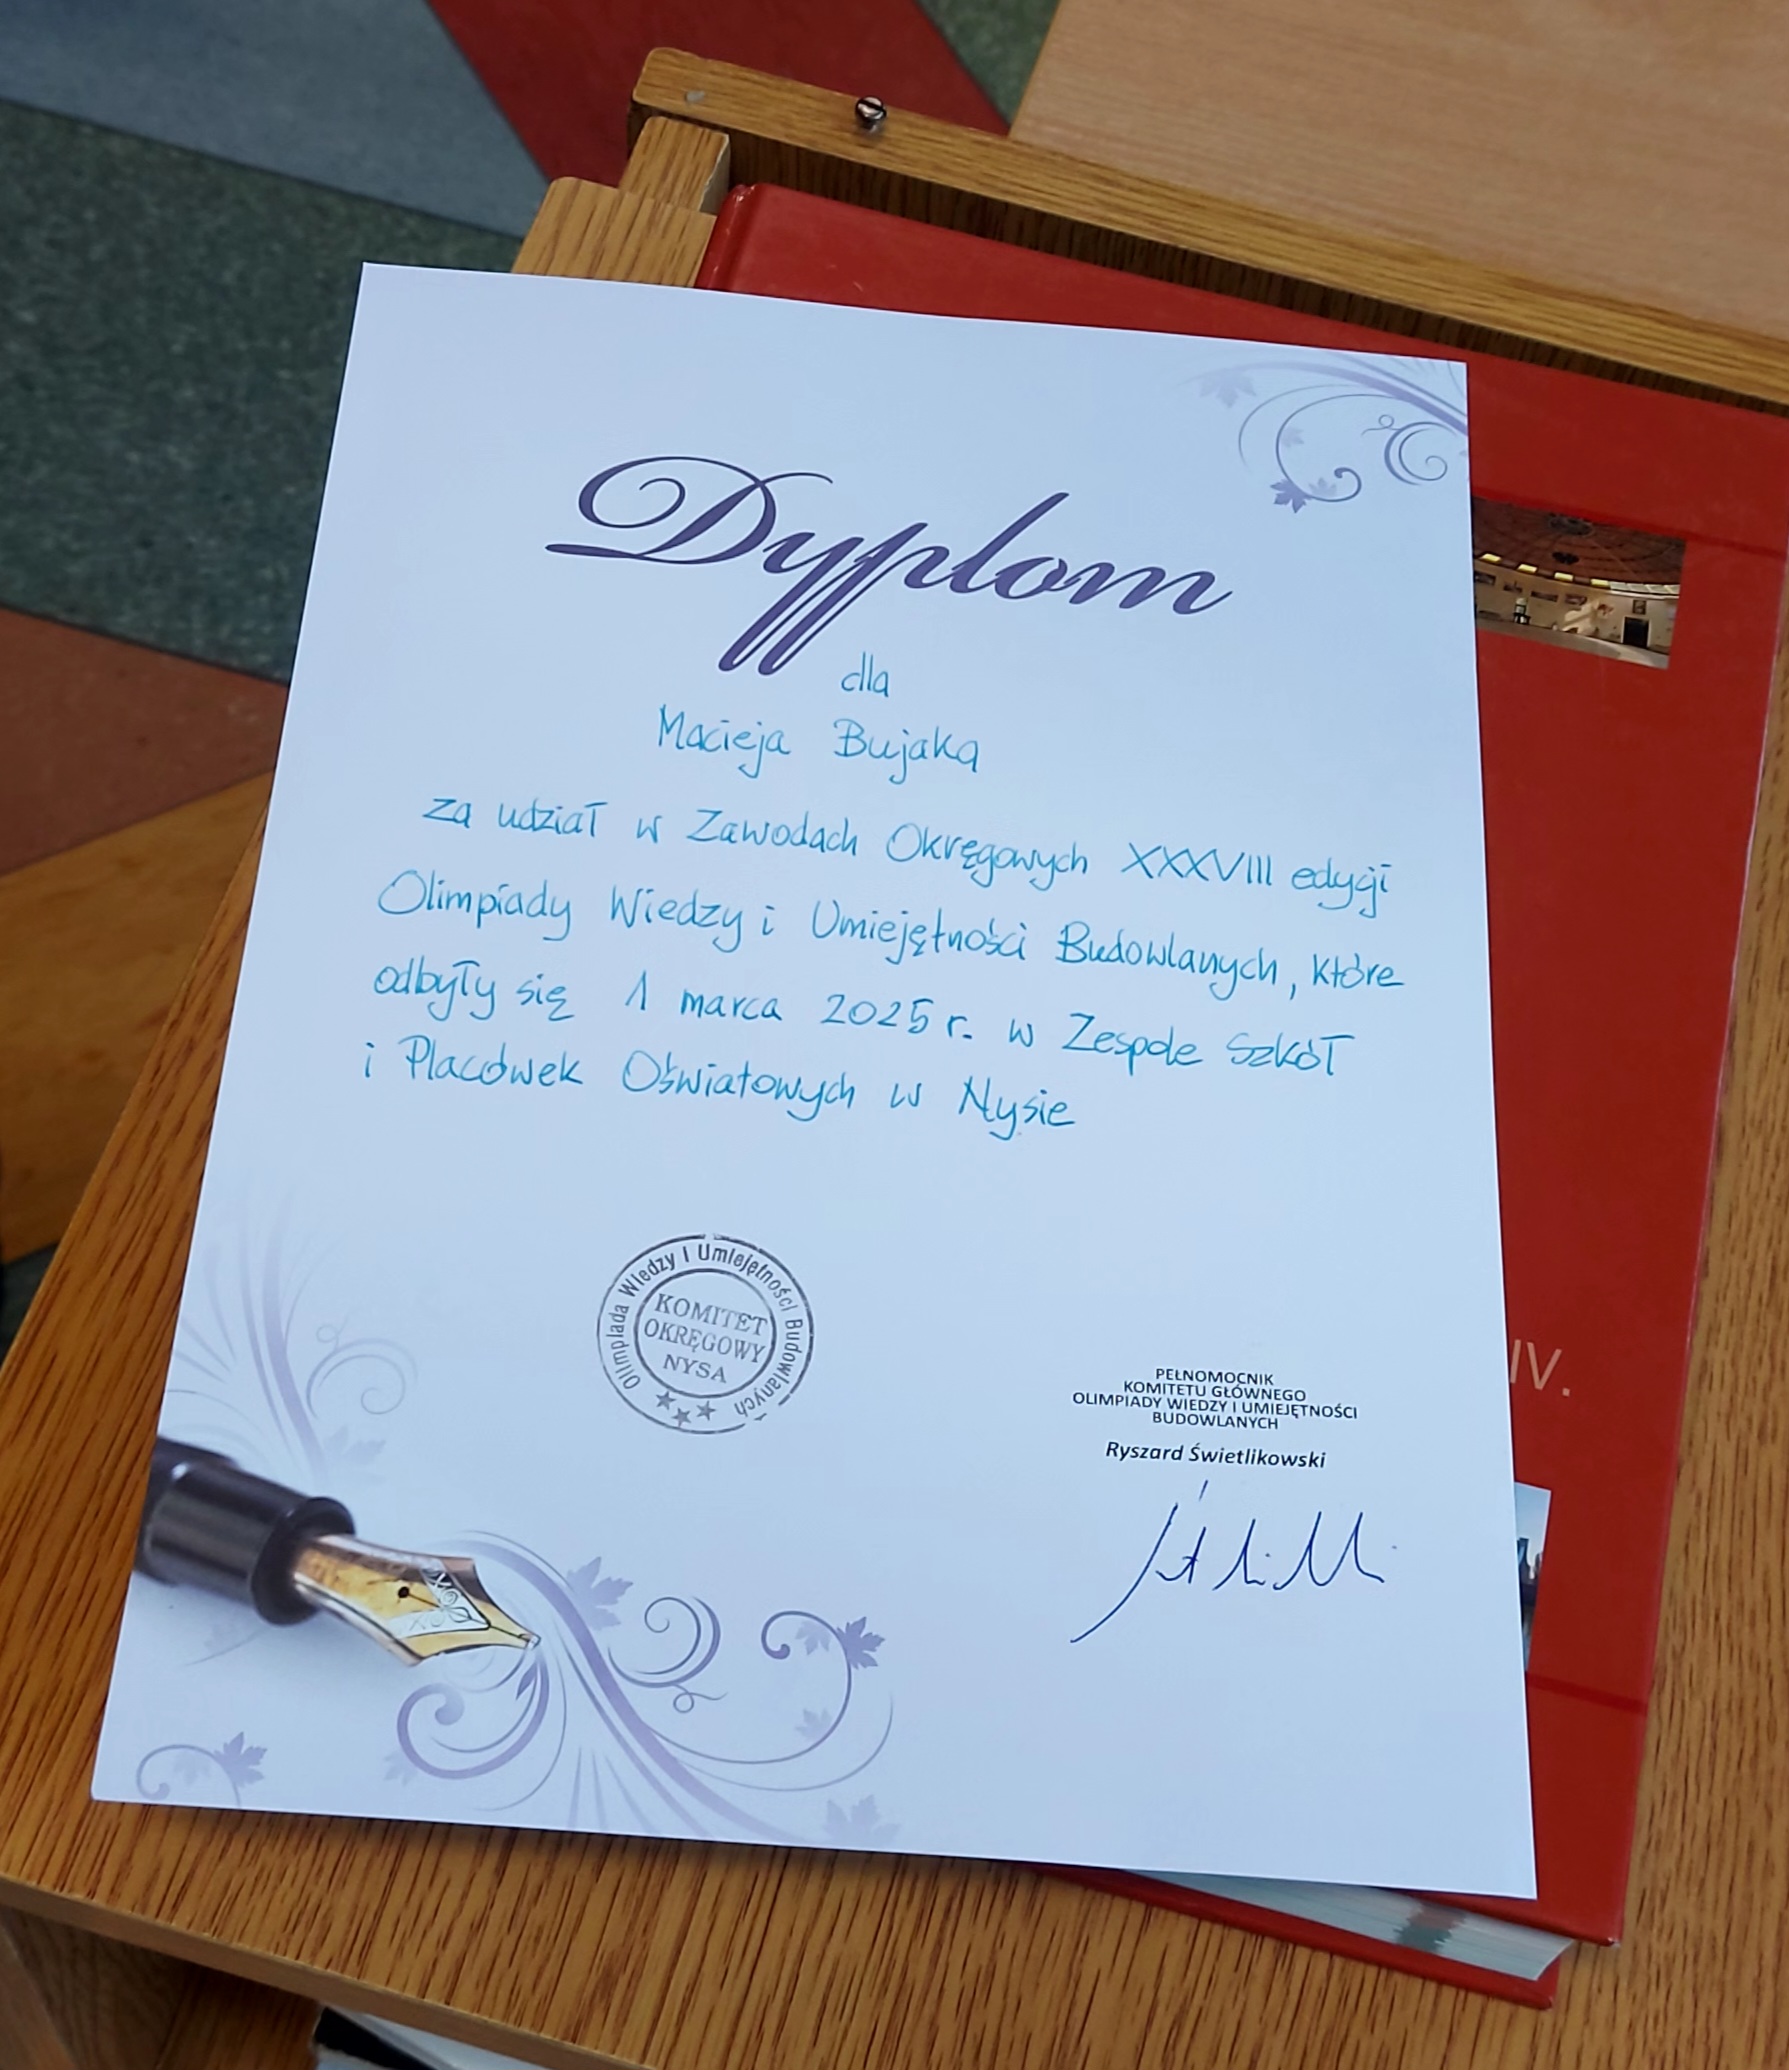 Dyplom
dla
Macieja Bujaka
za udział w Zawodach Okręgowych XXXVIII edycji
Olimpiady Wiedzy i Umiejętności Budowlanych, które
odbyły się 1 marca 2025 r. w Zespole Szkół
i Placówek Oświatowych w Nysie
Olimpiada Wiedzy i Umiejętności Budowlanych
KOMITET
OKRĘGOWY
NYSA
PEŁNOMOCNIK
KOMITETU GŁÓWNEGO
OLIMPIADY WIEDZY I UMIEJĘTNOŚCI
BUDOWLANYCH
Ryszard Świetlikowski
IV.